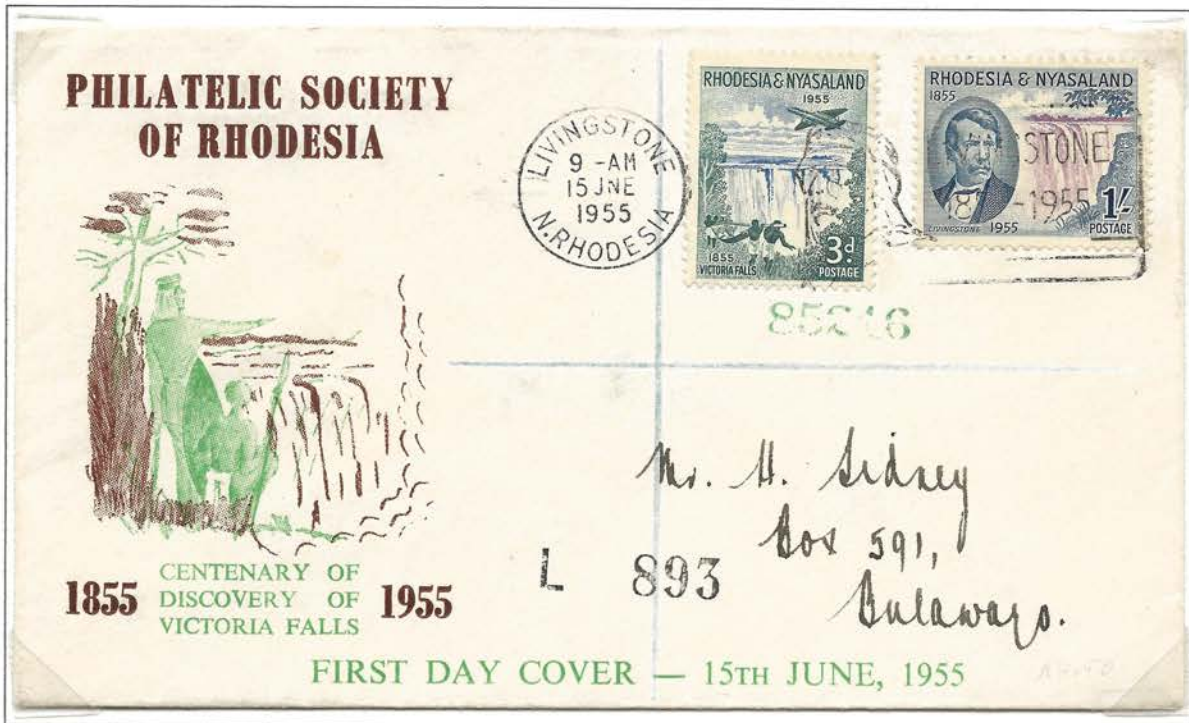 PHILATELIC SOCIETY
OF RHODESIA
LIVINGSTONE
9 -AM
15 JNE
1955
N.RHODESIA
RHODESIA & NYASALAND
1955
1855
VICTORIA FALLS
3d.
POSTAGE
RHODESIA & NYASALAND
1855
STONE
-1955
LIVINGSTONE
1955
1/-
POSTAGE
Mr. H. Sidney
Box 591,
Bulawayo.
L 893
1855 CENTENARY OF
DISCOVERY OF
VICTORIA FALLS 1955
FIRST DAY COVER — 15TH JUNE, 1955